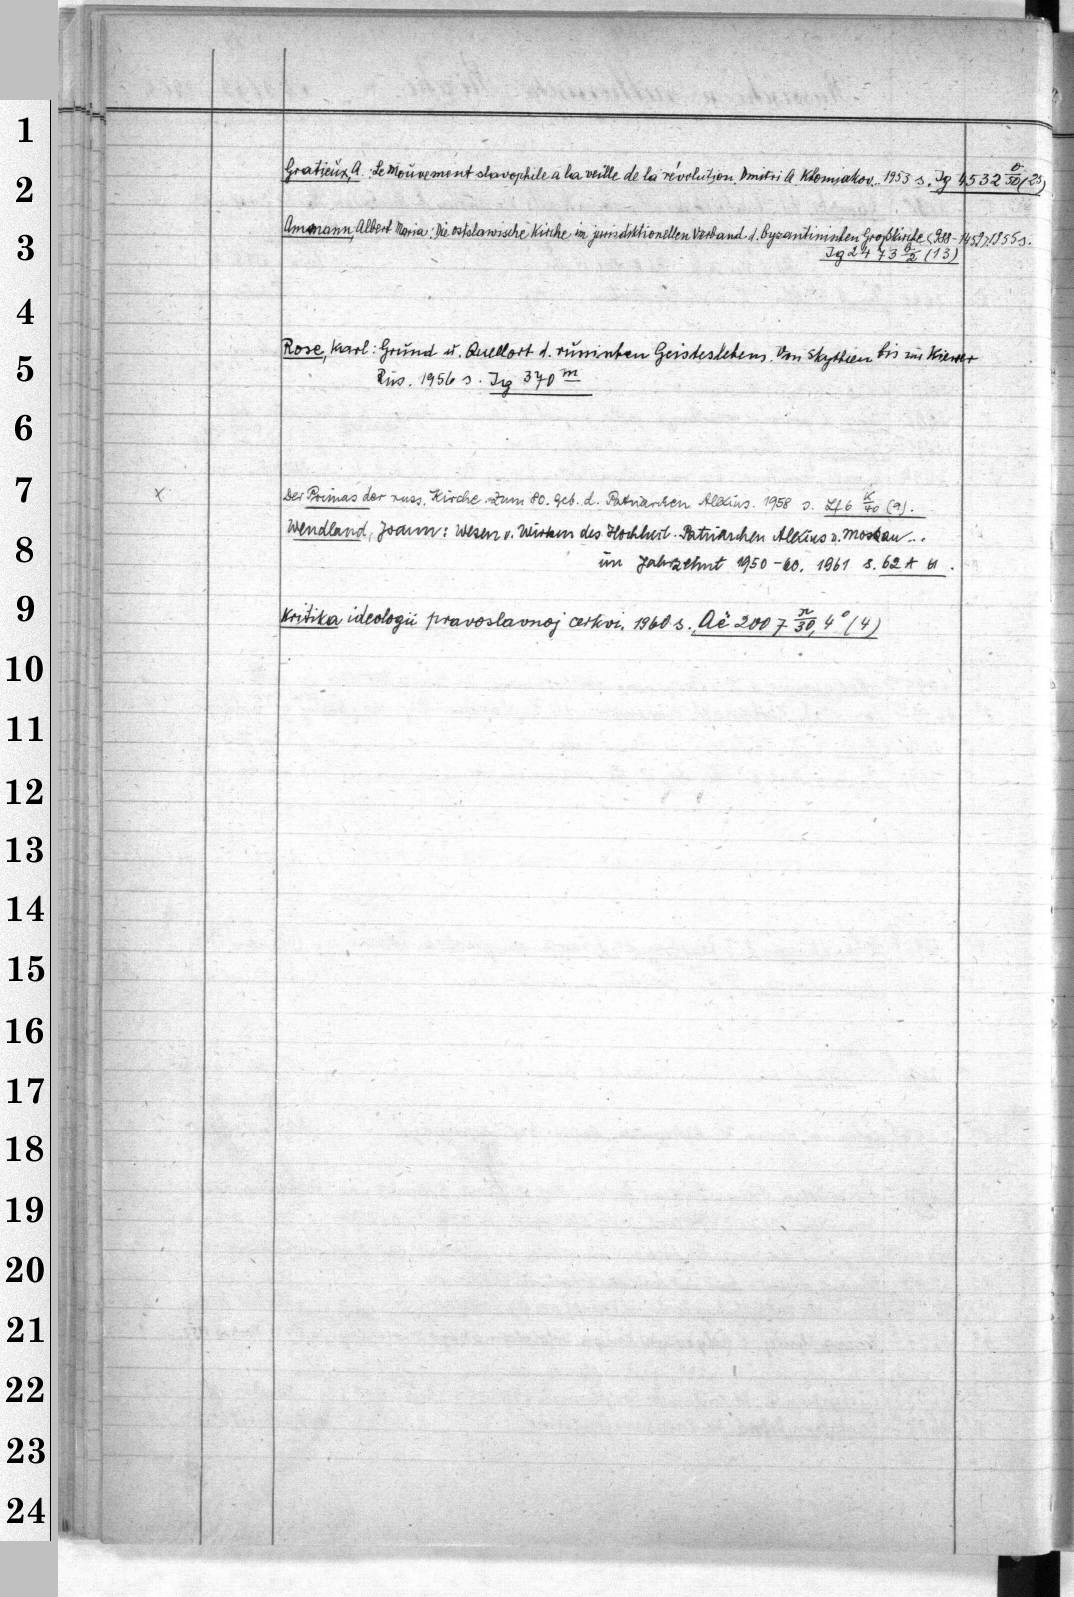 1
2
3
4
5
6
7
8
9
10
11
12
13
14
15
16
17
18
19
20
21
22
23
24
Gratieux, A.: Le Mouvement slavophile a la veille de la révolution. Dmitri A. Khomjakov.. 1953 s. Ig 4532 o/50 (25)
Ammann, Albert Maria: Die ostslawische Kirche im jurisdiktionellen Verband d. byzantinischen Großkirche (988-1459) 1955 s.
Ig 2473 (13)
Rose, Karl: Grund u. Quellort d. russischen Geisteslebens. Von Skythien bis zur Kiewer
Rus. 1956 s. Ig 370 m
x Der Primas der russ. Kirche. Zum 80. Geb. d. Patriarchen Alexius. 1958 s. Zf 6 k/70 (9).
Wendland, Joann: Wesen u. Wirken des Hochheil. Patriarchen Alexius v. Moskau...
im Jahrzehnt 1950-60. 1961 s. 62 A 61.
Kritika ideologii pravoslavnoj cerkvi. 1960 s. Ač 2007 n/30, 4° (4)